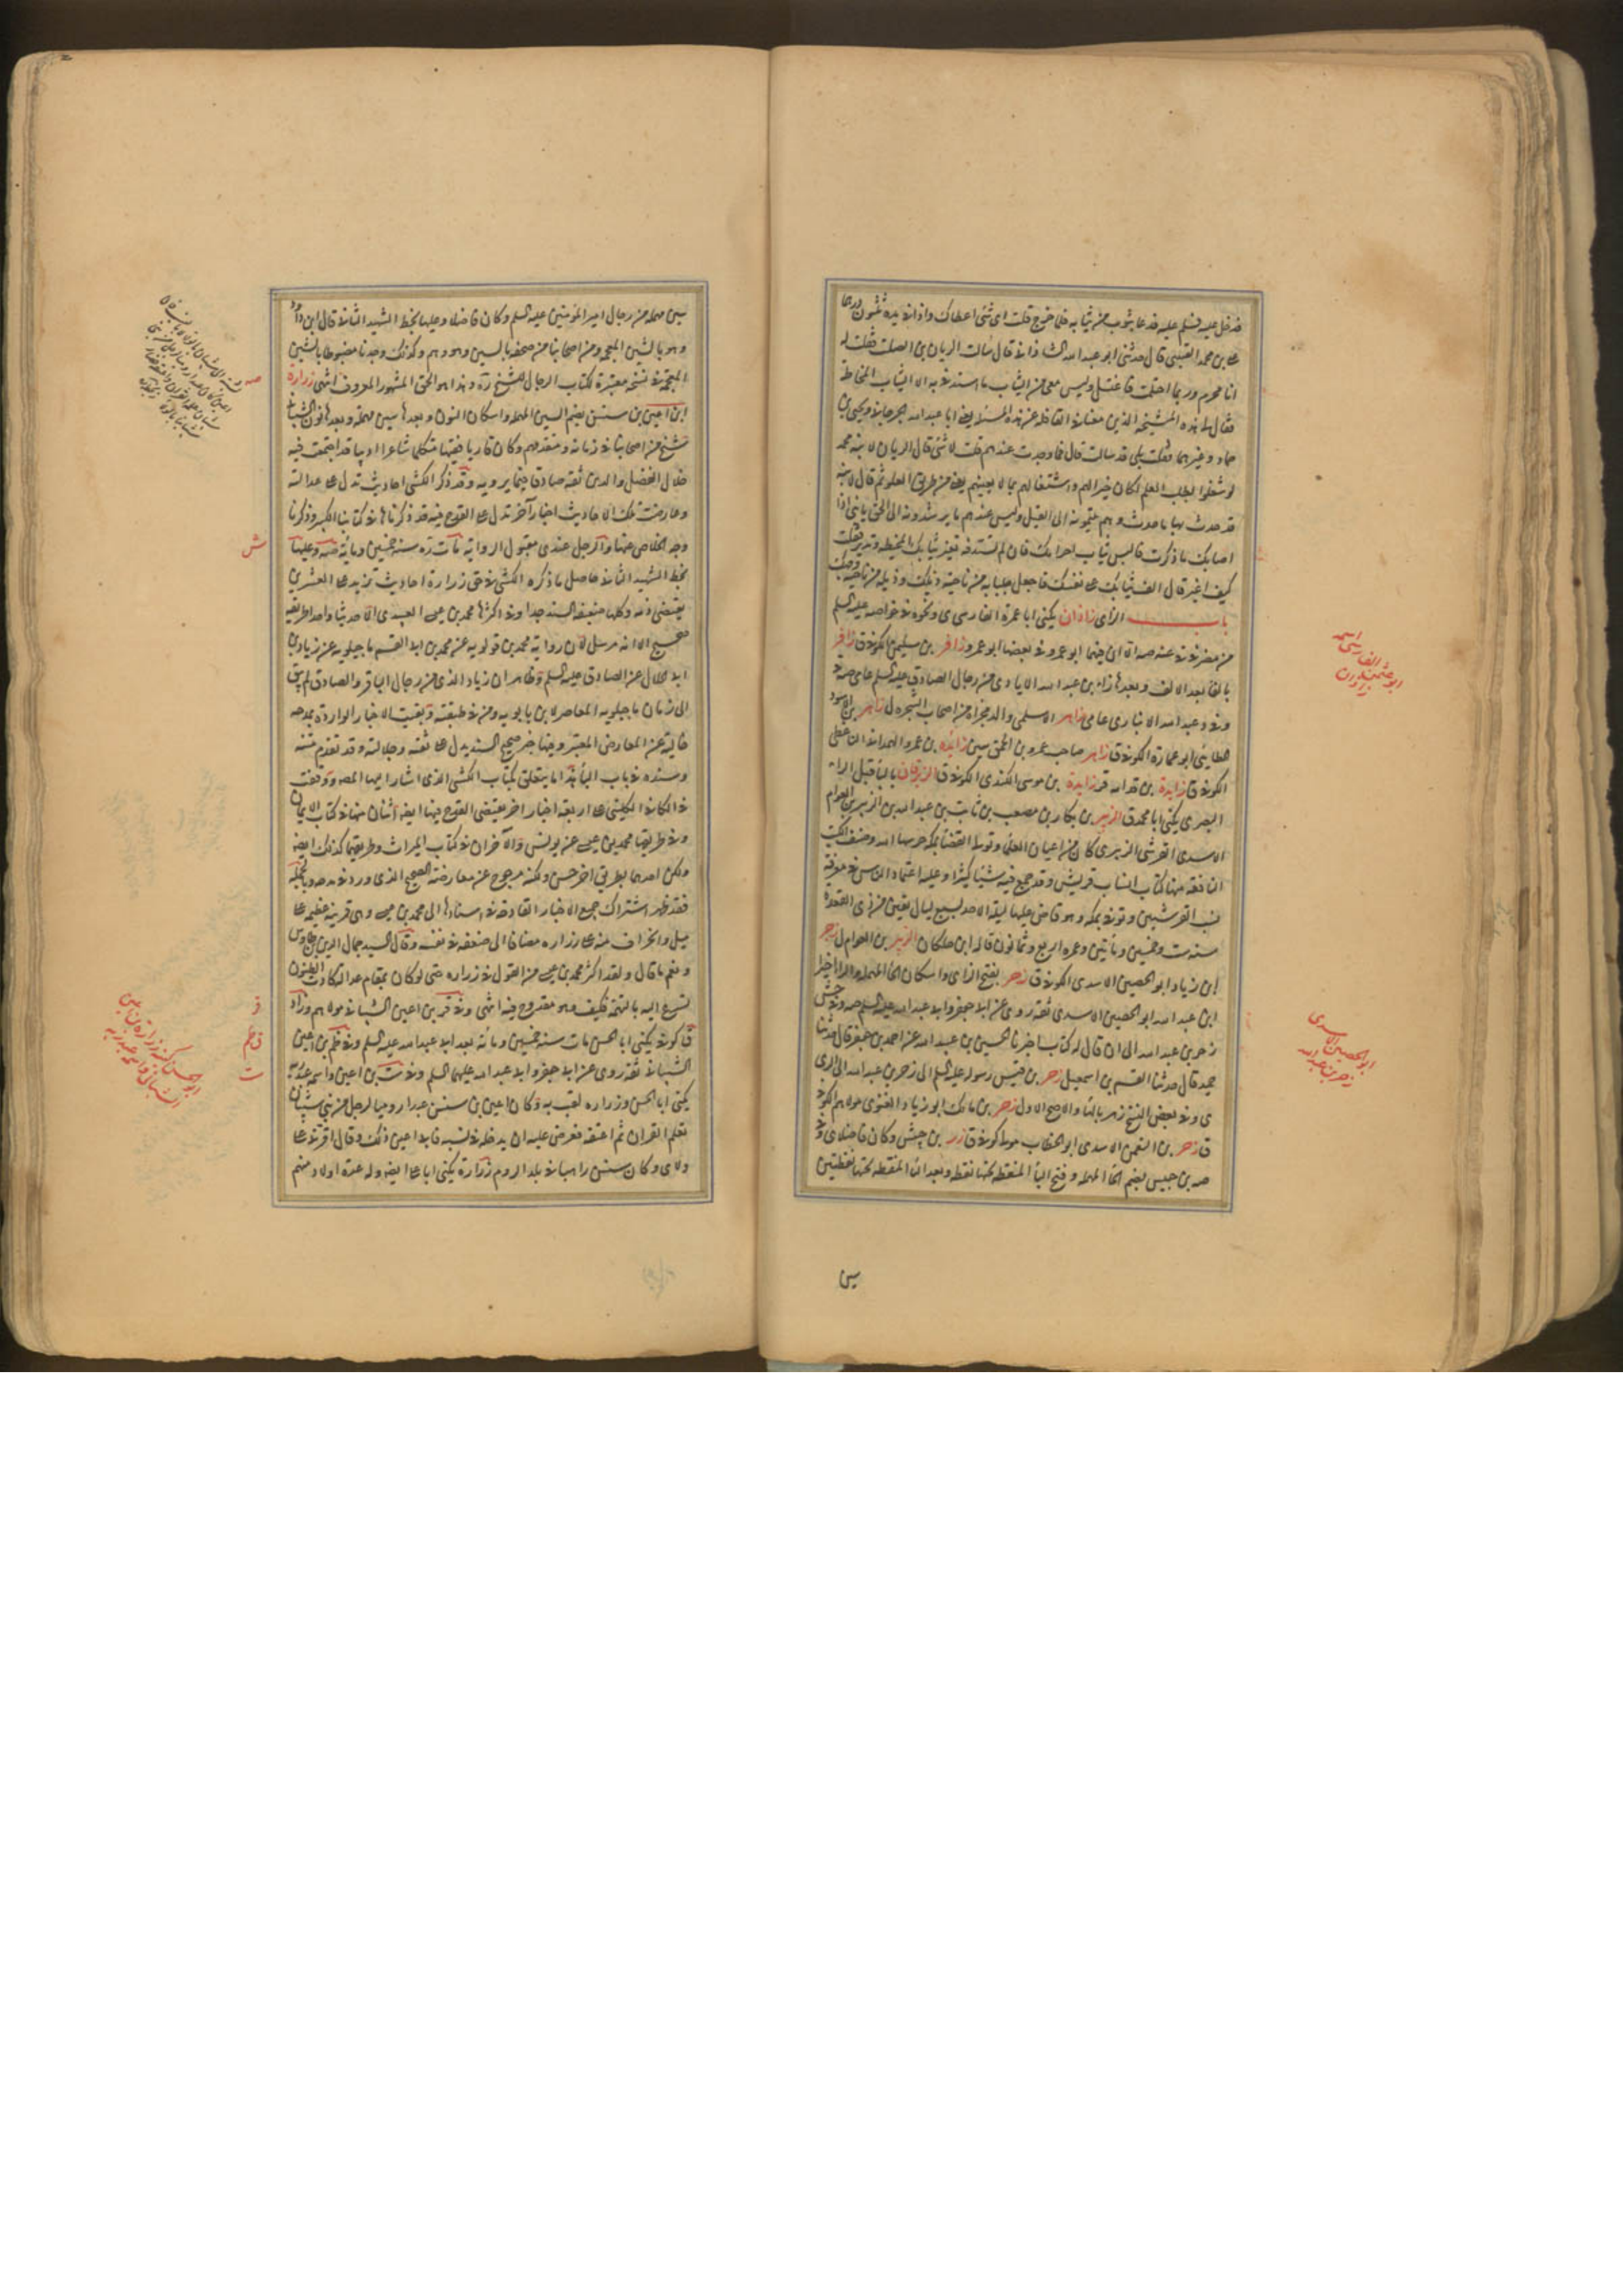 فدخل عليه فسلم عليه فدعا بثوب من ثيابه فلما خرج قلت اى شئ اعطاك واذا فى يده ثلثون درهما
على بن محمد القتيبى قال حدثنى ابو عبد الله الشاذانى قال سالت الريان بن الصلت فقلت له
انا محرم وربما احتلمت فاغتسل وليس معى من الثياب ما استدفئ به الا الثياب المخاطة
فقال لى هذه المشيخة الذين معنا فى القافلة عن هذه المسئلة يعنى ابا عبد الله الجرجانى ويحيى بن
حماد وغيرهما فقلت بلى قد سالت قال فما وجدت عندهم قلت لا شئ قال الريان لابنه محمد
لو شغلوا بطلب العلم لكان خيرا لهم واشتغالهم بما لا يعنيهم يعنى من طريق الغلو ثم قال لابنه
قد حدث بهذا ما حدث وهم ينتمونه الى الفيل وليس عندهم ما يرشدونه الى الحق يا بنى اذا
اصابك ما ذكرت فالبس ثياب احرامك فان لم تستدفئ فغير ثيابك المخيطة وتدثر فقلت
كيف اغير قال الق ثيابك على نفسك فاجعل جلبابه من ناحية ذيلك وذيله من ناحية وجهك
باب الزاى زاذان يكنى ابا عمرة الفارسى ى ونحوه فى خواصه عليه السلم
من مضر فى عنه صه الا ان فيهما ابو عمرو وفى بعضها ابو عمر وزافر بن سليمن الكوفى ق زافر
بالفا بعد الالف وبعدها زاء بن عبد الله الايادى من رجال الصادق عليه السلم عامى صه د
وفى د عبد الله الانبارى عامى زاهر الاسلمى والد مجزاه من اصحاب الشجرة ل زاهر بن الاسود
الطائى ابو عمارة الكوفى ق زاهر صاحب عمرو بن الحمق سين زائدة بن عمرو الهمدانى الناعطى
الكوفى ق زايدة بن قدامه قر زايدة بن موسى الكندى الكوفى ق الزبرقان بالباء قبل الراء
البصرى يكنى ابا محمد ق الزبير بن بكار بن مصعب بن ثابت بن عبد الله بن الزبير بن العوام
الاسدى القرشى الزبيرى كان من اعيان العلماء وتولى القضاء بمكة حرسها الله وصنف الكتب
النافعة منها كتاب انساب قريش وقد جمع فيه شيئا كثيرا وعليه اعتماد الناس فى معرفة
نسب القرشيين وتوفى بمكة وهو قاض عليها ليلة الاحد لسبع ليال بقين من ذى القعدة
سنة ست وخمسين ومائتين وعمره اربع وثمانون قاله ابن خلكان الزبير بن العوام ل زحر
ابن زياد ابو الحصين الاسدى الكوفى ق زحر بفتح الزاى واسكان الحا المهملة والرا اخيرا
ابن عبد الله ابو الحصين الاسدى ثقة روى عن ابى جعفر وابى عبد الله عليه السلم صه وفى جش
زحر بن عبد الله الى ان قال له كتاب اخبرنا الحسين بن عبيد الله عن احمد بن جعفر قال حدثنا
حميد قال حدثنا القسم بن اسمعيل زحر بن قيس رسوله عليه السلم الى زحر بن عبد الله الى الرى
ى وفى بعض النسخ زهر بالهاء والاصح الاول زحر بن مالك ابو زياد الغنوى مولاهم الكوفى
ق زحر بن النعمن الاسدى ابو الخطاب مولى كوفى ق زر بن حبيش وكان فاضلا ى وفى
صه بن حبيش بضم الحا المهملة وفتح الباء المنقطة تحتها نقطة وبعد الياء المنقطة تحتها نقطتين
سين
ابو عثمن الفارسى اسمه
زاذان
ابو الحصين الاسدى
زحر بن عبد الله
سين مهملة من رجال امير المؤمنين عليه السلم وكان فاضلا وعليها بخط الشهيد الثانى قال ابن داود
وهو بالشين المعجمة ومن اصحابنا من صحفه بالسين وهو وهم وكذلك وجدنا مضبوطا بالشين
المعجمة فى نسخة معتبرة لكتاب الرجال للشيخ ره وهذا هو الحق المشهور المعروف انتهى زرارة
ابن اعين بن سنسن بضم السين المهملة واسكان النون وبعدها سين مهملة وبعدها نون الشيبانى
شيخ من اصحابنا فى زمانه ومتقدمهم وكان قاريا فقيها متكلما شاعرا اديبا قد اجتمعت فيه
خلال الفضل والدين ثقة صادقا فيما يرويه وقد ذكر الكشى احاديث تدل على عدالته
وعارضت تلك الاحاديث اخبار آخر تدل على القدح فيه قد ذكرناها فى كتابنا الكبير وذكرنا
وجه الخلاص عنها والرجل عندى مقبول الرواية مات ره سنة خمسين ومائة صه وعليها
بخط الشهيد الثانى حاصل ما ذكره الكشى فى حق زرارة احاديث تزيد على العشرين
يقتضى ذمه وكلها ضعيفة السند جدا وفى اكثرها محمد بن عيسى العبيدى الا حديثا واحدا طريقه
صحيح الا انه مرسل لان رواية محمد بن قولويه عن محمد بن ابى القسم ماجيلويه عن زياد بن
ابى الحلال عن الصادق عليه السلم وظاهر ان زياد الذى من رجال الباقر والصادق لم يبق
الى زمان ماجيلويه المعاصر لابن بابويه ومن فى طبقته وبقيت الاخبار الواردة بمدحه
خالية عن المعارض المعتبر وفيها خبر صحيح السند يدل على ثقته وجلالته وقد تقدم متنه
وسنده فى باب الباء هذا ما يتعلق بكتاب الكشى الذى اشار اليها المصه ووقفت
فى الكافى للكلينى على اربعة اخبار اخر يقتضى القدح فيها ايضا اثنان منها فى كتاب الايمان
وفى طريقهما محمد بن عيسى عن يونس والآخران فى كتاب الميراث وطريقهما كذلك ايضا
ولكن احدهما بطريق اخر حسن ولكنه مرجوح عن معارضة الصحيح الذى ورد فى مدحه وبالجملة
فقد ظهر اشتراك جميع الاخبار القادحة فى اسنادها الى محمد بن عيسى وهى قرينة عظيمة على
ميل وانحراف منه على زرارة مضافا الى ضعفه فى نفسه وقال السيد جمال الدين بن طاوس
ونعم ما قال ولقد اكثر محمد بن عيسى من القول فى زرارة حتى لو كان بمقام عدالة كادت الظنون
تسرع اليه بالتهمة فكيف وهو مقدوح فيه انتهى وفى قر بن اعين الشيبانى مولاهم وزاد
ق كوفى يكنى ابا الحسن مات سنة خمسين ومائة بعد ابى عبد الله عليه السلم وفى ظم بن اعين
الشيبانى ثقة روى عن ابى جعفر وابى عبد الله عليهما السلم وفى ست بن اعين واسمه عبد ربه
يكنى ابا الحسن وزرارة لقب به وكان اعين بن سنسن عبدا روميا لرجل من بنى شيبان
تعلم القران ثم اعتقه فعرض عليه ان يدخله فى نسبه فابى اعين ذلك وقال اقرنى على
ولاى وكان سنسن راهبا فى بلد الروم زرارة يكنى ابا على ايضا وله عدة اولاد منهم
صه
ش
قر
ق ظم
ست